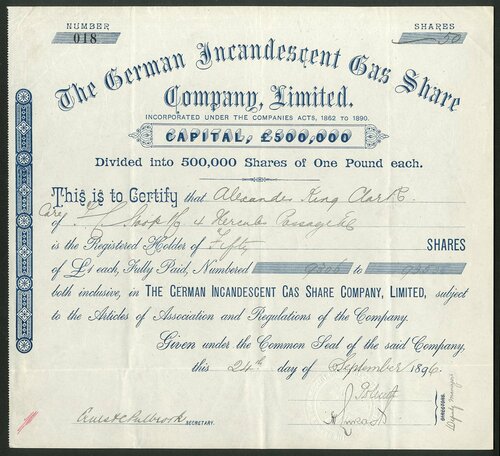 NUMBER
018
SHARES
50
The German Incandescent Gas Share
Company, Limited.
INCORPORATED UNDER THE COMPANIES ACTS, 1862 TO 1890.
CAPITAL, £500,000
Divided into 500,000 Shares of One Pound each.
This is to Certify that Alexander King Clark
of 4 Hercules Passage EC
is the Registered Holder of Fifty SHARES
of £1 each, Fully Paid, Numbered to
both inclusive, in THE GERMAN INCANDESCENT GAS SHARE COMPANY, LIMITED, subject
to the Articles of Association and Regulations of the Company.
Given under the Common Seal of the said Company,
this 24th day of September 1896.
DIRECTORS.
Deputy Manager
SECRETARY.